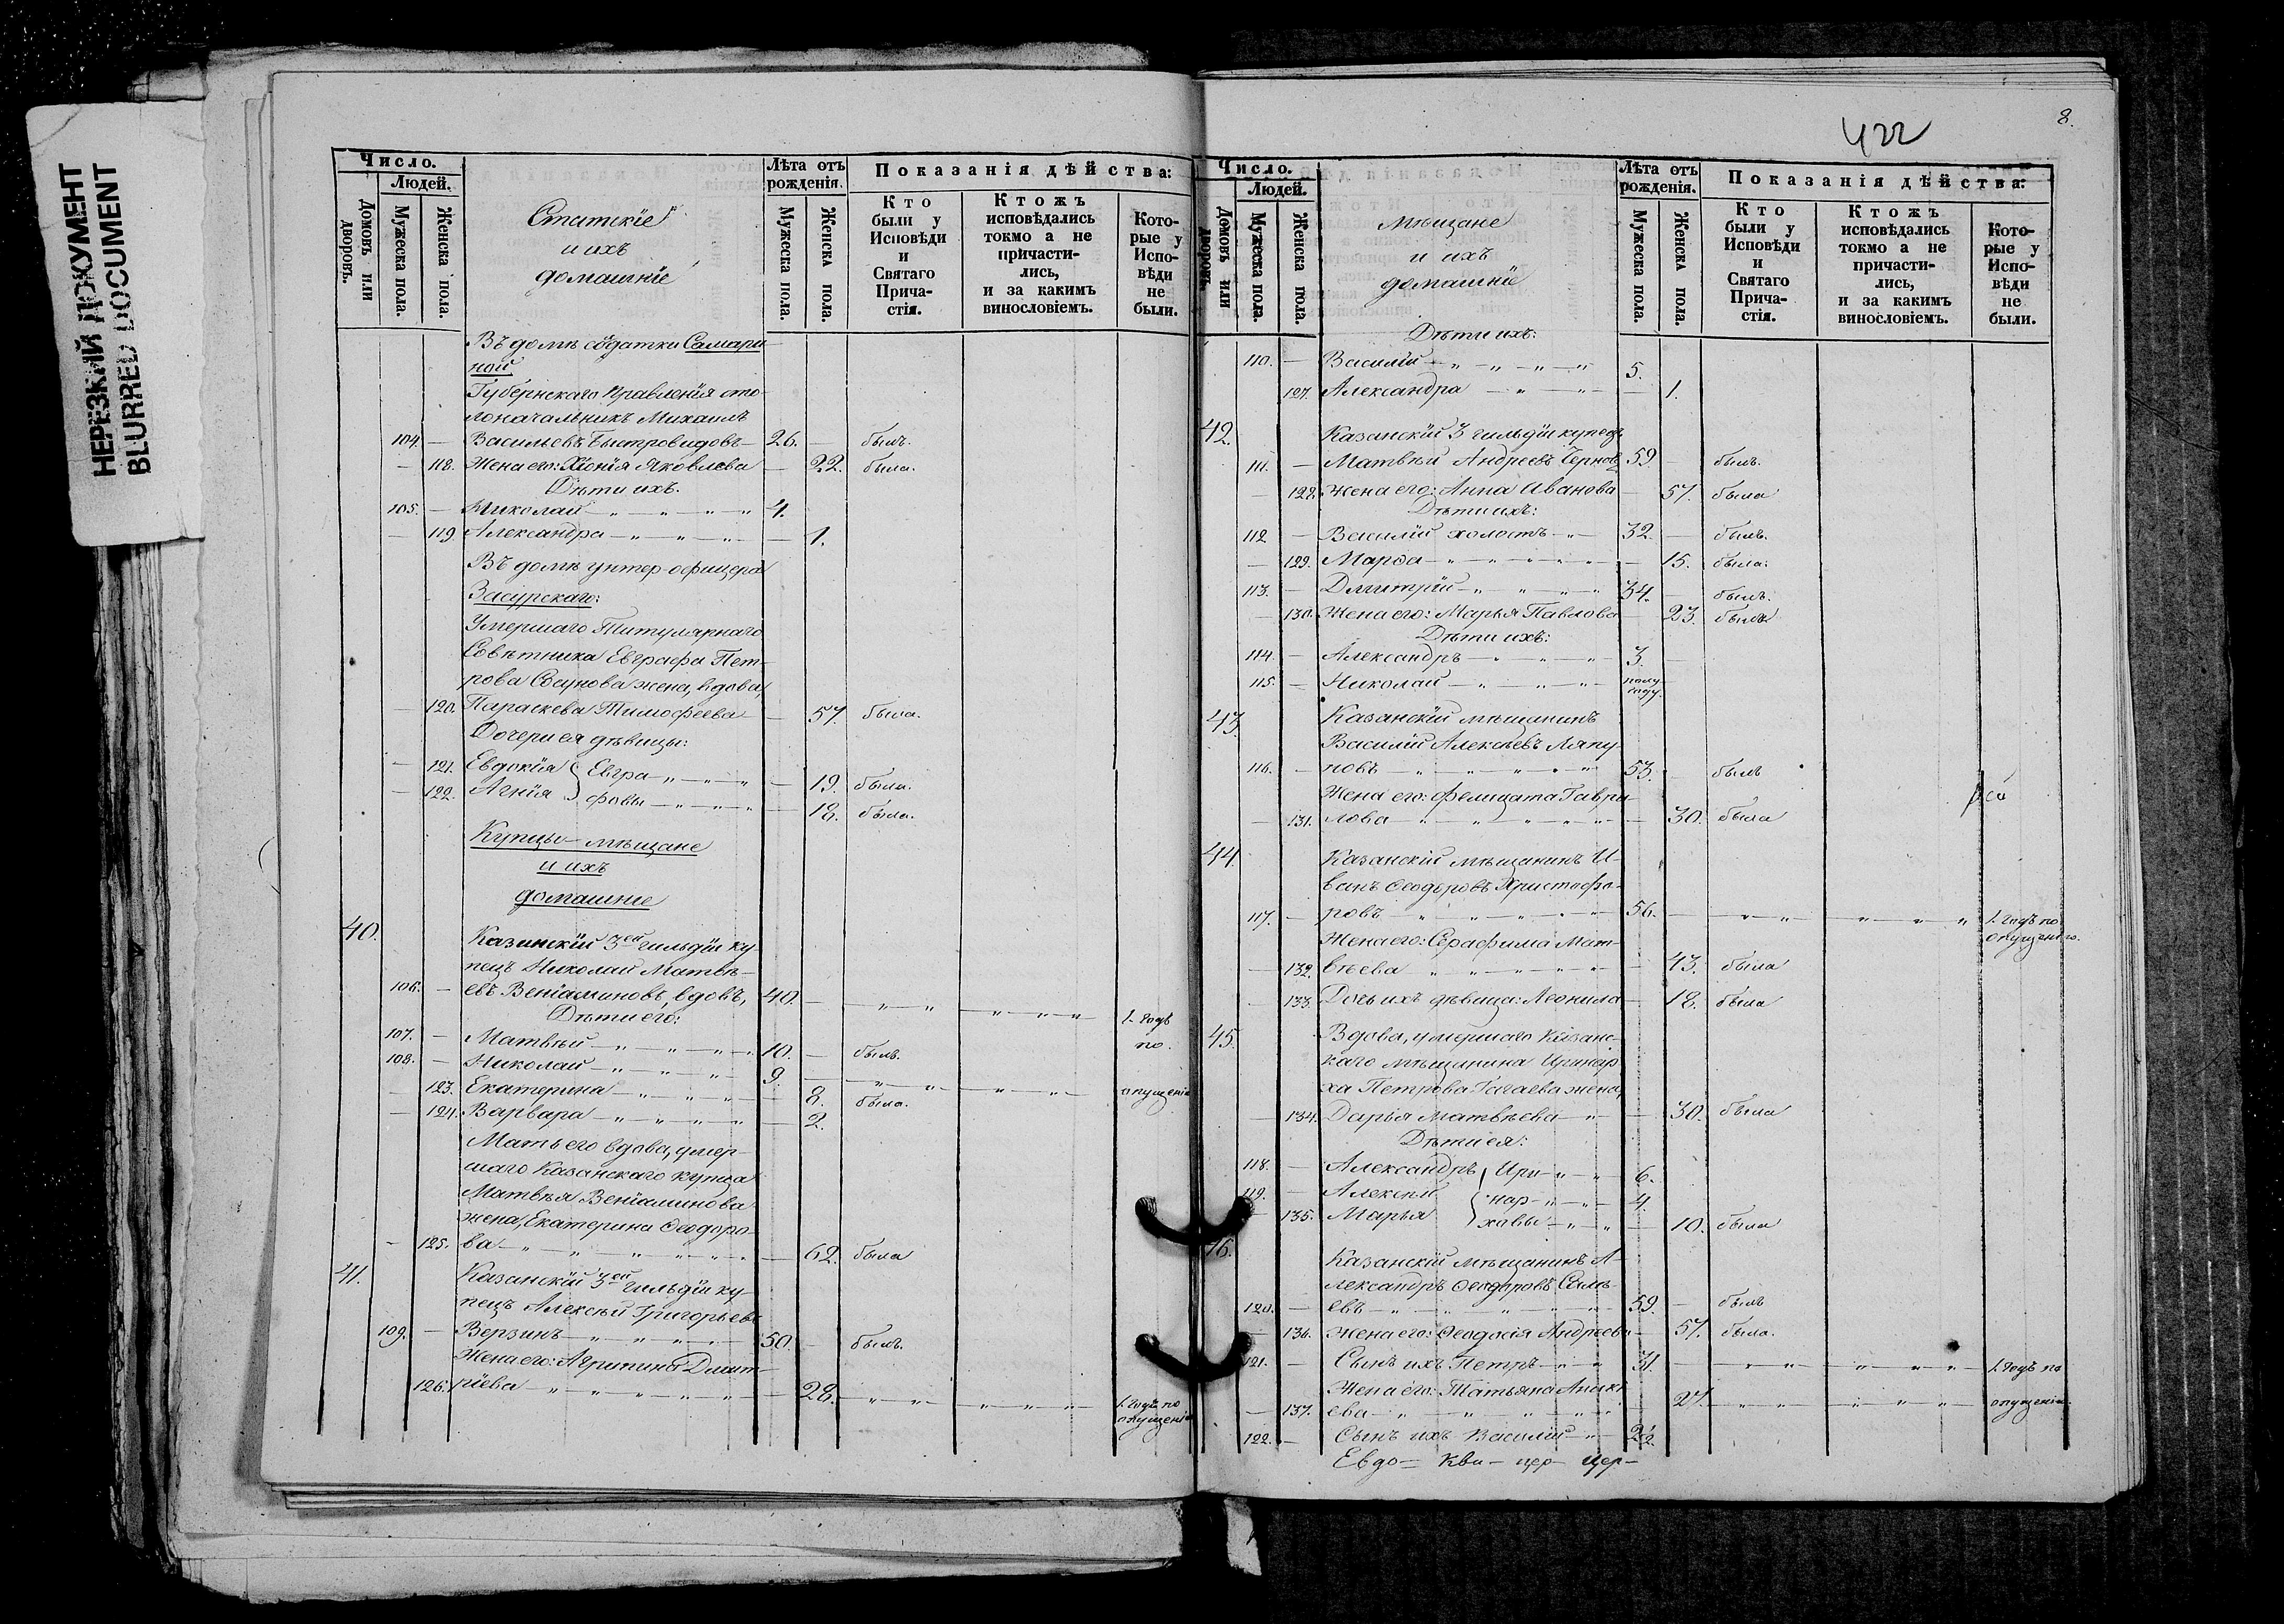 НЕРЕЗКИЙ ДОКУМЕНТ
BLURRED DOCUMENT
Число.
Людей.
Домовъ или дворовъ.
Мужеска пола.
Женска пола.
Статскіе
и ихъ
домашніе
Лѣта отъ рожденія.
Мужеска пола.
Женска пола.
Показанія дѣйства:
Кто были у Исповѣди и Святаго Причастія.
Ктожъ исповѣдались токмо а не причастились, и за какимъ винословіемъ.
Которые у Исповѣди не были.
Въ домѣ солдатки Самари
ной
Губернскаго Правленія сто-
лоначальникъ Михаилъ
104. — Васильевъ Быстровидовъ — 26. — былъ.
— 118. Жена его: Хіонія Яковлева — 22. была.
Дѣти ихъ.
105. — Николай — „ — „ — „ — „ 4.
— 119. Александра — „ — „ — „ — 1.
Въ домѣ унтер-офицера
Засурскаго:
Умершаго Титулярнаго
Совѣтника Евграфа Пет-
рова жена, вдова,
— 120. Параскева Тимофеева — 57. была.
Дочери ея дѣвицы:
— 121. Евдокія Евгра — „ — „ — „ — 19. была.
— 122. Агнія фовы — „ — „ — „ — 18. была.
Купцы — мѣщане
и ихъ
домашніе
40. Казанскій 3ей гильдіи ку-
пецъ Николай Матвѣ-
106. — евъ Веніаминовъ, вдовъ, 40. — „ — „ — „ — „ — „ 1. годъ
Дѣти его:
107. — Матвѣй — „ — „ — „ — „ 10. — былъ. по
108. — Николай — „ — „ — „ 9. — „ — „ — „ — „ опущенію
— 123. Екатерина — „ — „ — „ — 8. была.
— 124. Варвара — „ — „ — „ — „ — 2.
Мать его вдова, умер-
шаго Казанскаго купца
Матвѣя Веніаминова
жена, Екатерина Ѳеодоро-
— 125. ва — „ — „ — „ — „ — „ — 62. была
41. Казанскій 3ей гильдіи ку-
пецъ Алексѣй Григорьевъ
109. — Верзинъ — „ — „ — „ — „ 50. — былъ.
Жена его: Агрипина Дмит-
126. ріева — „ — „ — „ — „ — 28. — „ — „ — „ — „ — „ 1. годъ по
опущенію
422
8.
Число.
Людей.
Домовъ или дворовъ.
Мужеска пола.
Женска пола.
Мѣщане
и ихъ
домашніе
Лѣта отъ рожденія.
Мужеска пола.
Женска пола.
Показанія дѣйства:
Кто были у Исповѣди и Святаго Причастія.
Ктожъ исповѣдались токмо а не причастились, и за какимъ винословіемъ.
Которые у Исповѣди не были.
Дѣти ихъ:
110. — Василій — „ — „ — „ — „ 5.
127. Александра — „ — „ — 1.
42. Казанскій 3 гильдіи купецъ
111. — Матвѣй Андреевъ 59. — былъ.
— 128. Жена его: Анна Иванова — 57. была
Дѣти ихъ:
112 — Василій холостъ — „ — 32. — былъ.
— 129. Марѳа — „ — „ — „ — „ — 15. была.
113. — Дмитрій — „ — „ — „ 34. — былъ.
— 130. Жена его: Марья Павлова — 23. была
Дѣти ихъ:
114. — Александръ — „ — „ — „ 3. —
115. — Николай — „ — „ — „ полу-
году.
43. Казанскій мѣщанинъ
Василій Алексѣевъ Ляпу-
116. — новъ — „ — „ — „ — „ 53. — былъ
Жена его: Фелицата Гаври-
— 131. лова — „ — „ — „ — „ — 30. была
44. Казанскій мѣщанинъ И-
ванъ Ѳеодоровъ Христофо-
117. — ровъ — „ — „ — „ — „ 56. — „ — „ — „ — „ — „ 1. годъ по
опущенію.
Жена его: Серафима Мат-
— 132. вѣева — „ — „ — „ — „ — 43. была
— 133. Дочь ихъ дѣвица: Леонила — 18. была
45. Вдова, умершаго Казанс-
каго мѣщанина Иринар-
ха Петрова жена,
— 134. Дарья Матвѣева — „ — 30. была
Дѣти ея:
118. — Александръ Ири — „ — „ 6.
119. — Алексѣй нар — „ — „ 4.
— 135. Марья ховы — „ — „ — 10. была
46. Казанскій мѣщанинъ А-
лександръ Ѳеодоровъ
120. — евъ — „ — „ — „ — „ 59. — былъ
— 136. Жена его: Ѳеодосія Андреева — 57. была.
121. — Сынъ ихъ Петръ — „ — „ 31. — „ — „ — „ — „ — „ 1. годъ по
Жена его: Татьяна Аники
— 137. ева — „ — „ — „ — „ — 27. — „ — „ — „ — „ — „ опущенію.
122. — Сынъ ихъ Василій — „ 2½.